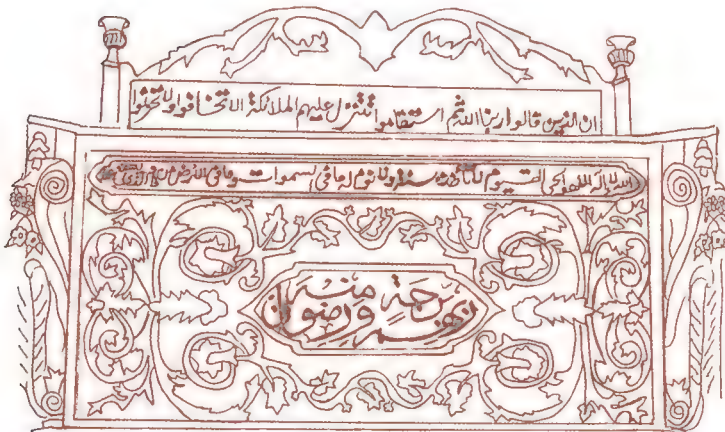 ان الذين قالوا ربنا الله ثم استقاموا تتنزل عليهم الملائكة الا تخافوا ولا تحزنوا
الله لا اله الا هو الحي القيوم لا تأخذه سنة ولا نوم له ما في السموات وما في الارض من ذا الذي
برحمة منه
ورضوان